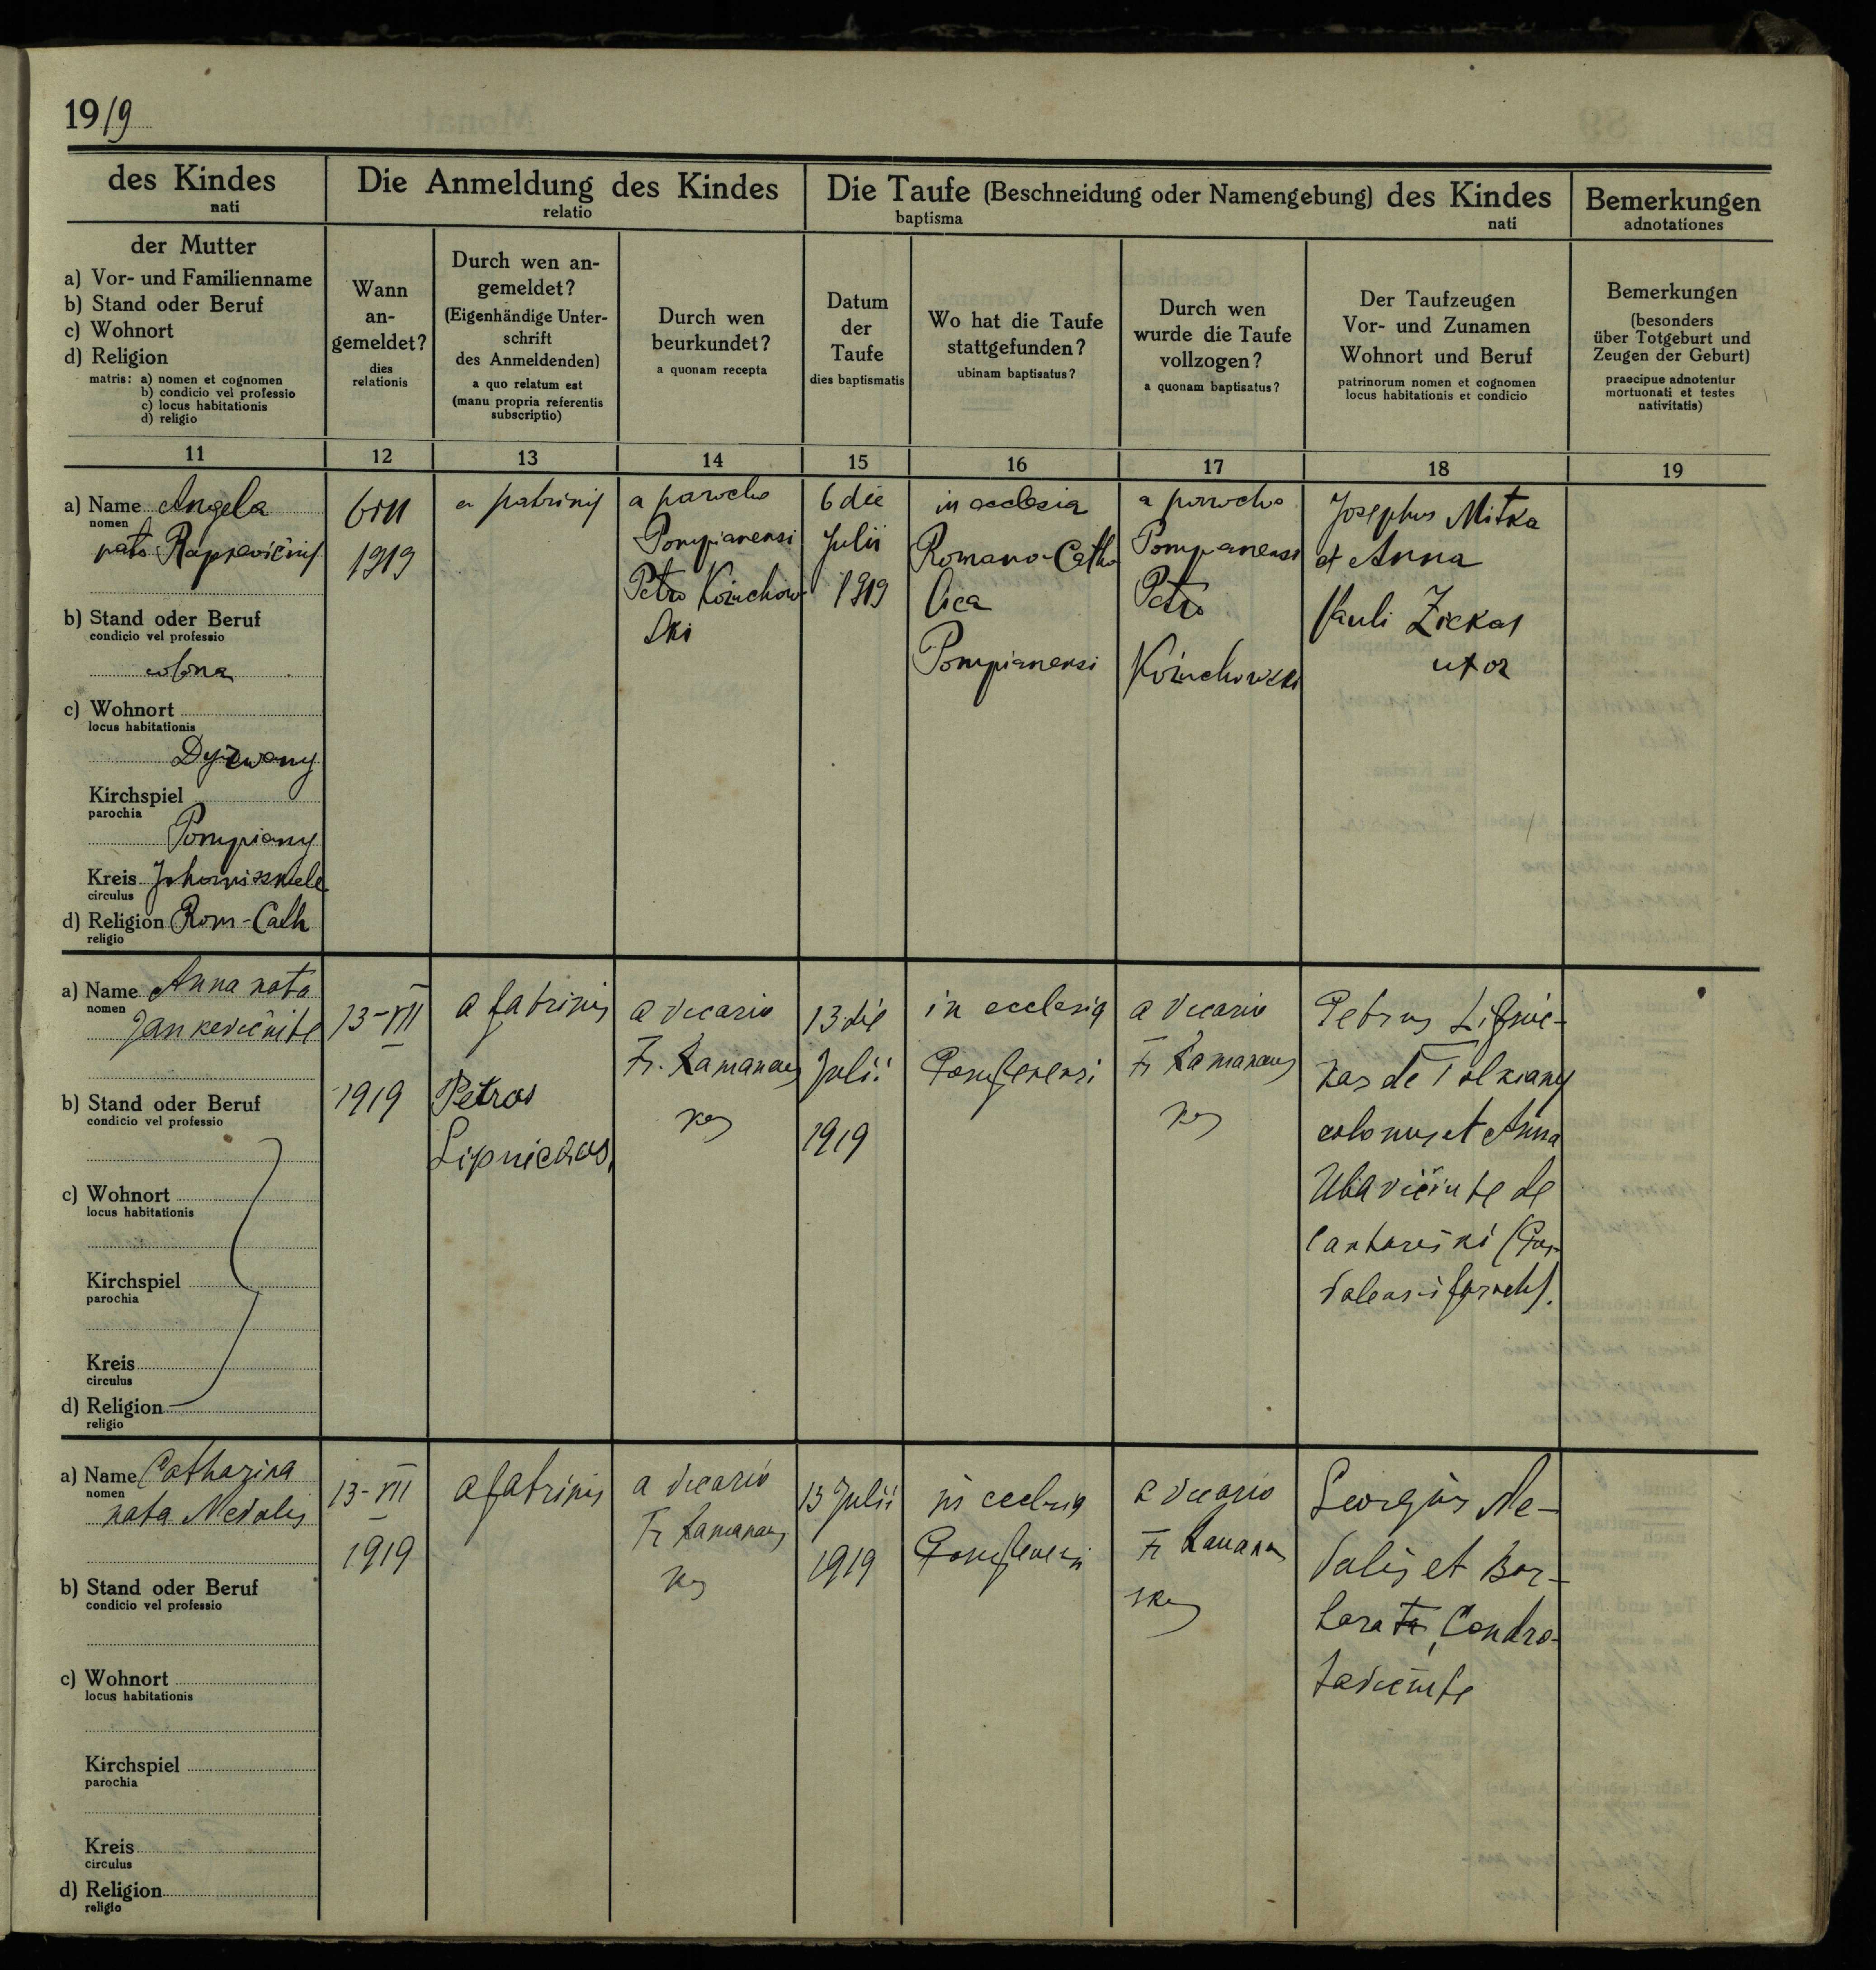 1919
des Kindes
nati
Die Anmeldung des Kindes
relatio
Die Taufe (Beschneidung oder Namengebung) des Kindes
baptisma nati
Bemerkungen
adnotationes
der Mutter
a) Vor- und Familienname
b) Stand oder Beruf
c) Wohnort
d) Religion
matris: a) nomen et cognomen
b) condicio vel professio
c) locus habitationis
d) religio
Wann
an-
gemeldet?
dies
relationis
Durch wen an-
gemeldet?
(Eigenhändige Unter-
schrift
des Anmeldenden)
a quo relatum est
(manu propria referentis
subscriptio)
Durch wen
beurkundet?
a quonam recepta
Datum
der
Taufe
dies baptismatis
Wo hat die Taufe
stattgefunden?
ubinam baptisatus?
Durch wen
wurde die Taufe
vollzogen?
a quonam baptisatus?
Der Taufzeugen
Vor- und Zunamen
Wohnort und Beruf
patrinorum nomen et cognomen
locus habitationis et condicio
Bemerkungen
(besonders
über Totgeburt und
Zeugen der Geburt)
praecipue adnotentur
mortuonati et testes
nativitatis)
11 12 13 14 15 16 17 18 19
a) Name Angela
nomen
nata
b) Stand oder Beruf
condicio vel professio
colona
c) Wohnort
locus habitationis
Dyrwany
Kirchspiel
parochia
Pompiany
Kreis
circulus
d) Religion Rom-Cath
religio
1919
a patrinis
a parocho
Pompianensi
Petro Kozuchow
ski
6 die
Julii
1919
in ecclesia
Romano-Catho
lica
Pompianensi
a parocho
Pompianensi
Petro
Kozuchowski
Josephus Mitka
et Anna
Pauli Zickas
uxor
a) Name Anna nata
nomen
Jankevičiute
b) Stand oder Beruf
condicio vel professio
c) Wohnort
locus habitationis
Kirchspiel
parochia
Kreis
circulus
d) Religion
religio
13-VII
1919
a patrinis
Petras
Lipnickas
a vicario
Fr. Ramanaus
kas
13 die
Julii
1919
in ecclesia
Pompenensi
a vicario
Fr Ramanaus
kas
Petrus Lipnic-
kas de
colonus et Anna
de
a) Name Catharina
nomen
nata Nedalis
b) Stand oder Beruf
condicio vel professio
c) Wohnort
locus habitationis
Kirchspiel
parochia
Kreis
circulus
d) Religion
religio
13-VII
1919
a patrinis
a vicario
Fr Ramanaus
kas
13 Julii
1919
in ecclesia
Pompenensi
a vicario
Fr Ramanau
skas
Georgius Ne-
dalis et Bar-
bara